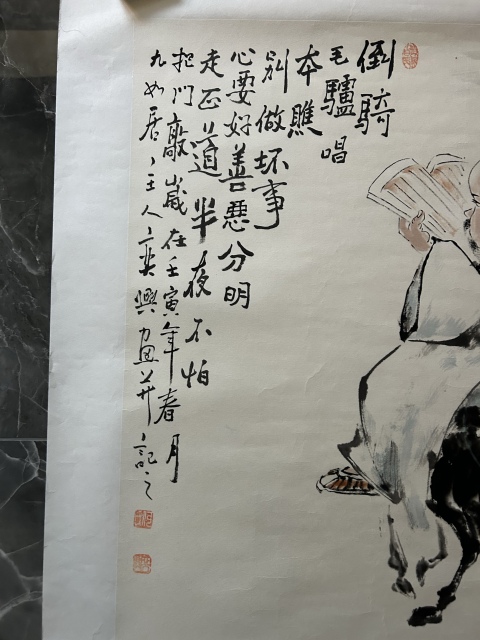 倒騎
毛驢唱
本瞧
别做坏事
心要好善悪分明
走正道半夜不怕
把门敲歲在壬寅年春月
九如居主人奕興画并記之